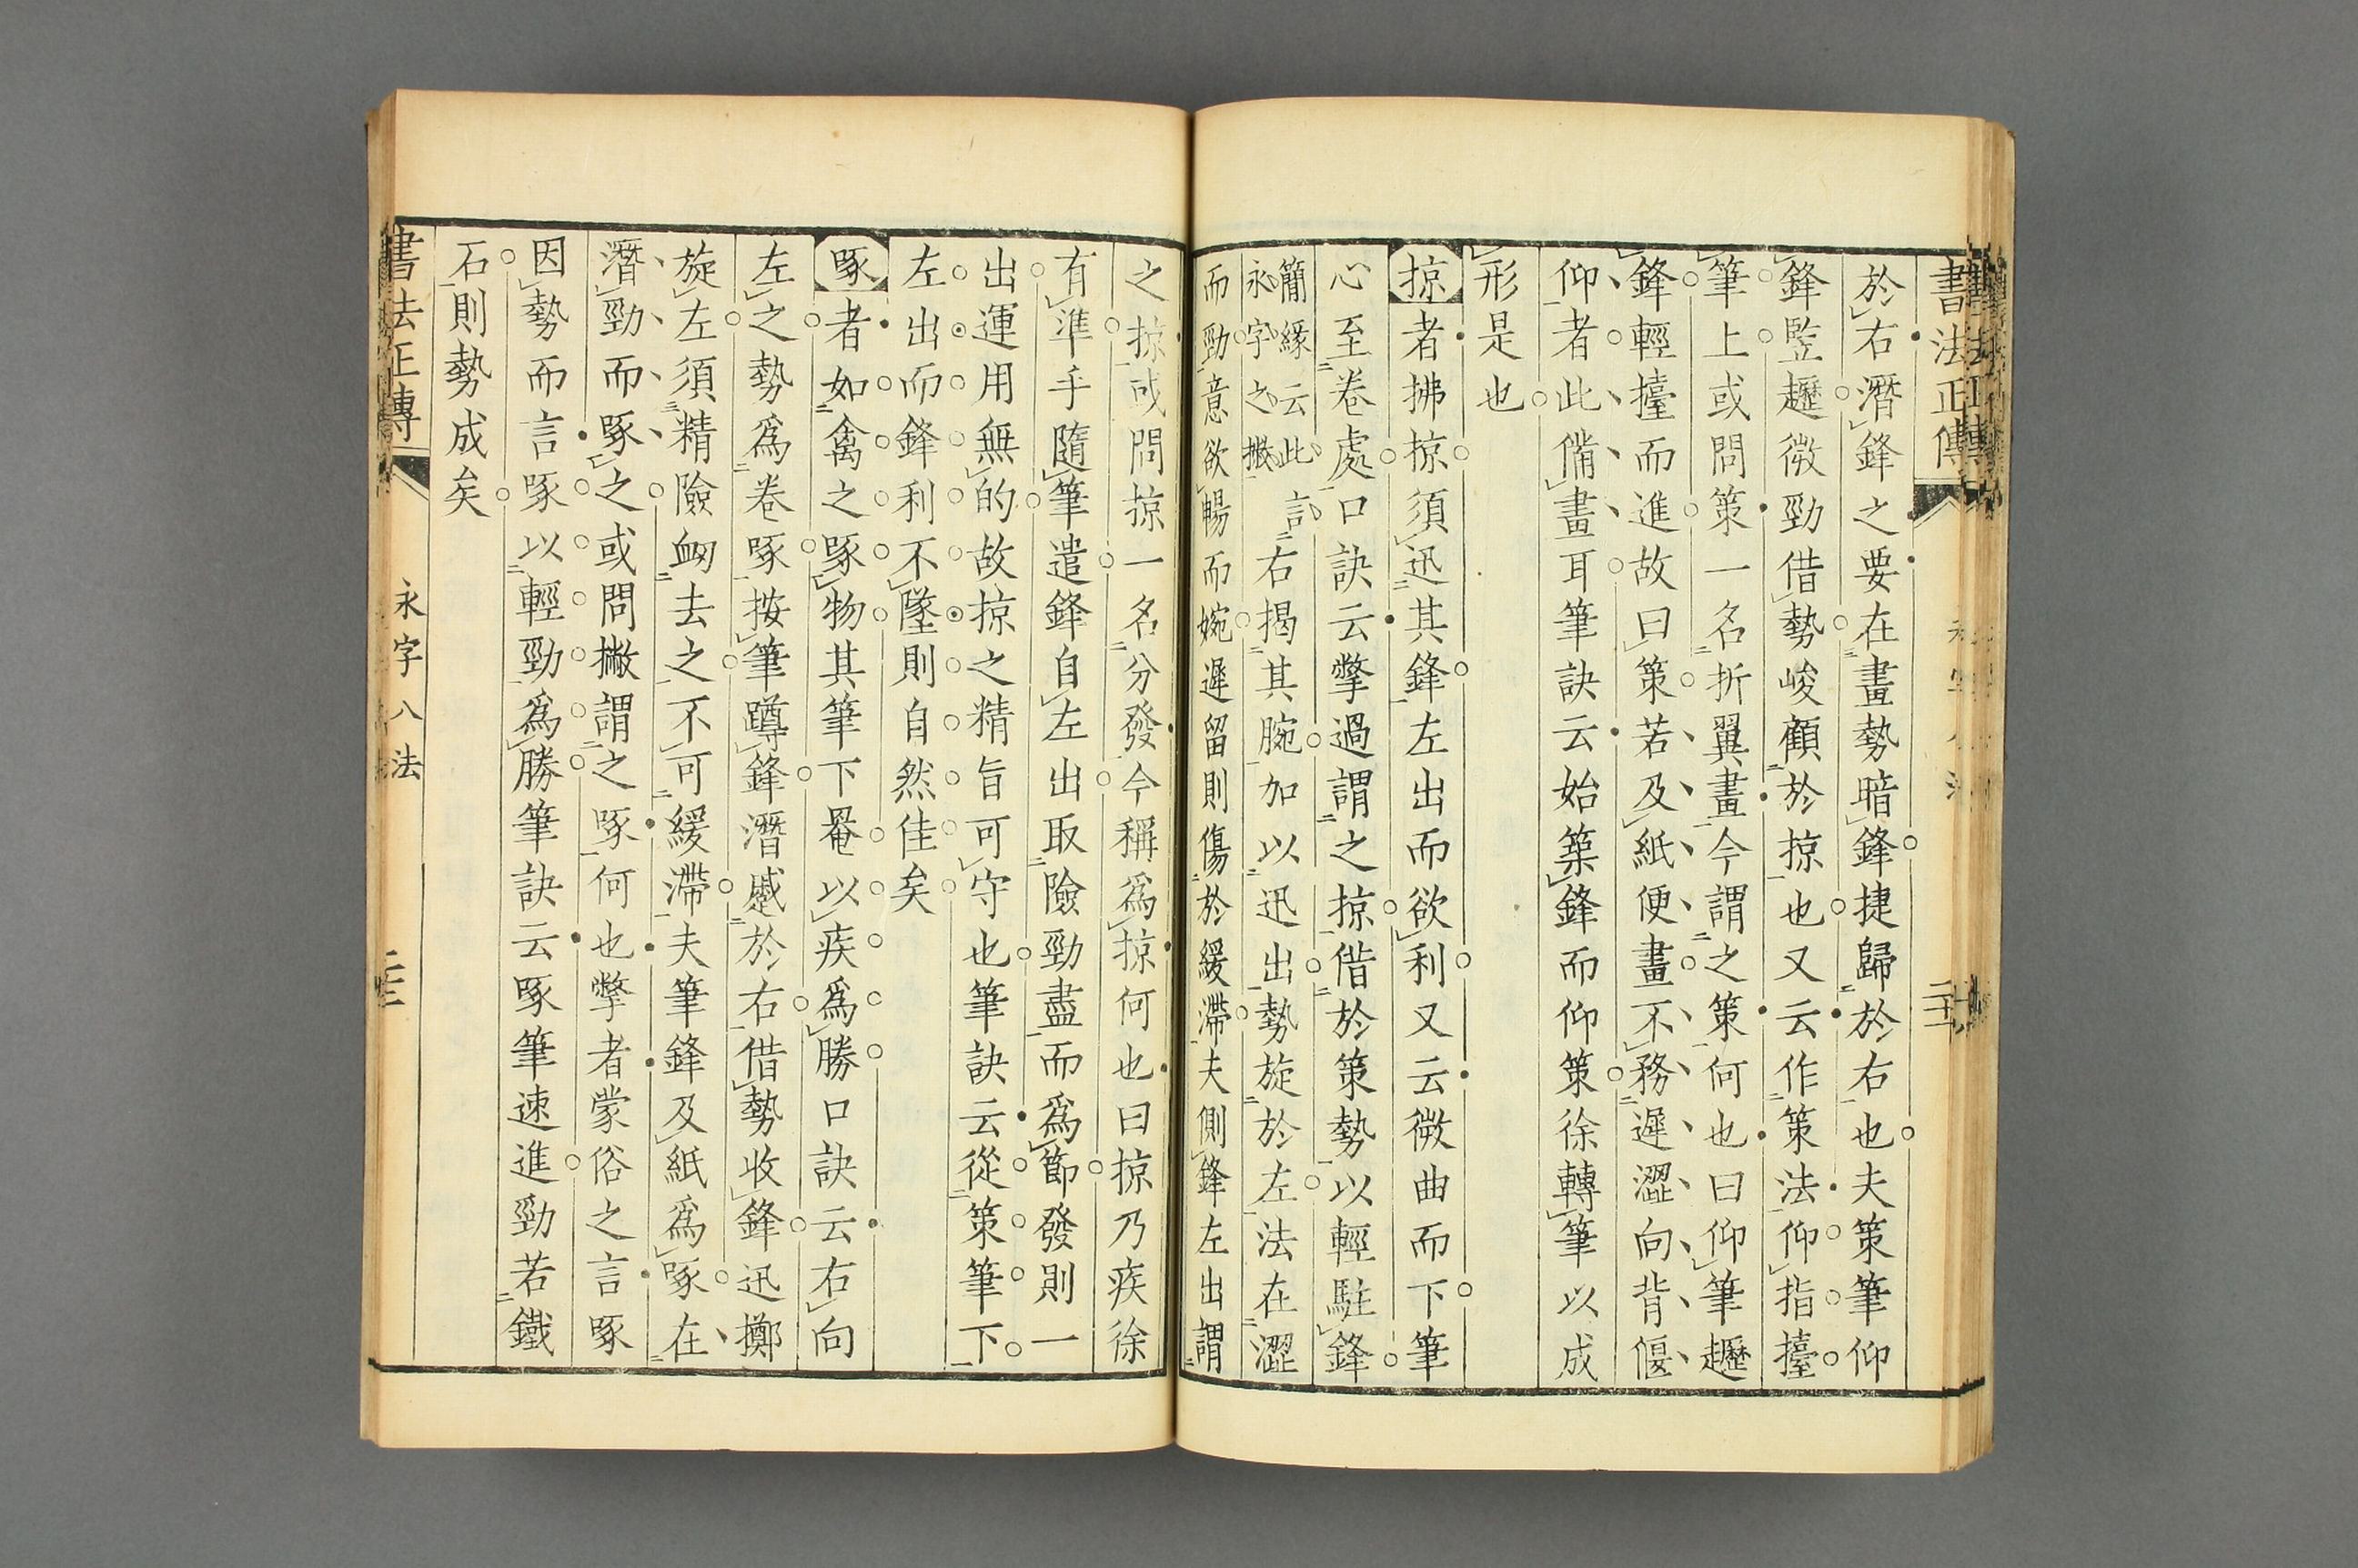 書法正傳
於右潛鋒之要在畫勢暗鋒捷歸於右也夫策筆仰
鋒監趯微勁借勢峻顧於掠也又云作策法仰指擡
筆上或問策一名折翼畫今謂之策何也曰仰筆趯
鋒輕擡而進故曰策若及紙便畫不務遲澀向背偃
仰者此備畫耳筆訣云始築鋒而仰策徐轉筆以成
形是也
掠者拂掠須迅其鋒左出而欲利又云微曲而下筆
心至卷處口訣云撆過謂之掠借於策勢以輕駐鋒
簡緣云此言
永字之撇
右揭其腕加以迅出勢旋於左法在澀
而勁意欲暢而婉遲留則傷於緩滯夫側鋒左出謂
之掠或問掠一名分發今稱爲掠何也曰掠乃疾徐
有準手隨筆遣鋒自左出取險勁盡而爲節發則一
出運用無的故掠之精旨可守也筆訣云從策筆下
左出而鋒利不墜則自然佳矣
啄者如禽之啄物其筆下罨以疾爲勝口訣云右向
左之勢爲卷啄按筆蹲鋒潛蹙於右借勢收鋒迅擲
旋左須精險衂去之不可緩滯夫筆鋒及紙爲啄在
潛勁而啄之或問撇謂之啄何也撆者蒙俗之言啄
因勢而言啄以輕勁爲勝筆訣云啄筆速進勁若鐵
石則勢成矣
書法正傳
永字八法